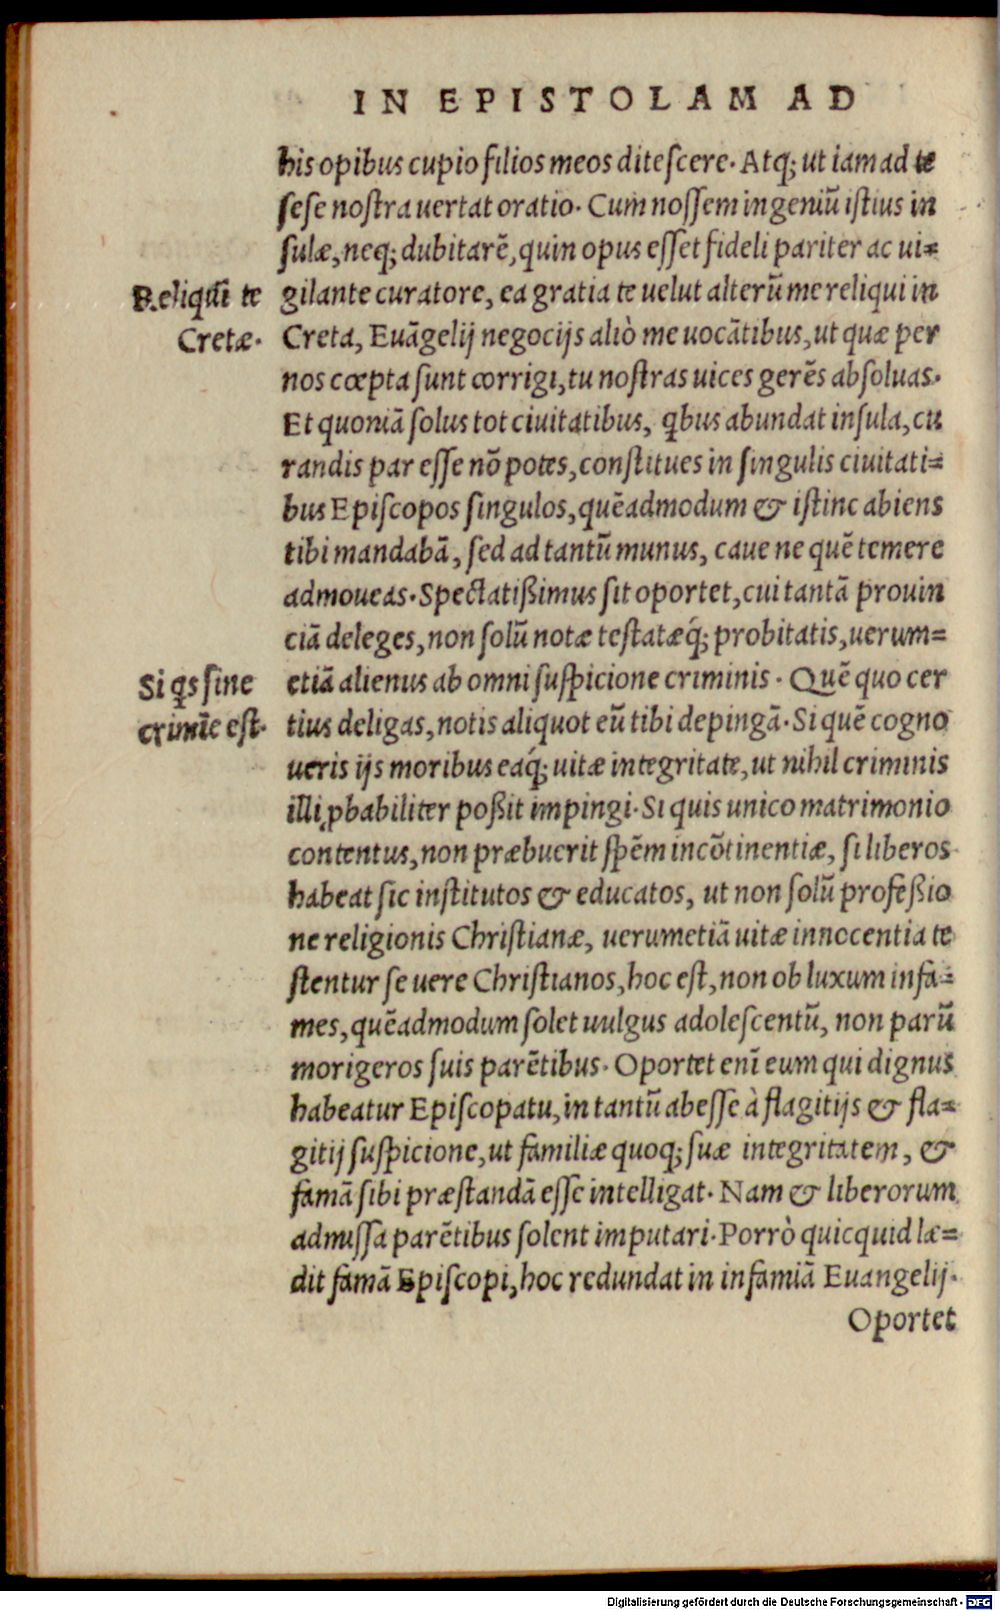 IN EPISTOLAM AD
his opibus cupio filios meos ditescere. Atq; ut iam ad te
sese nostra uertat oratio. Cum nossem ingeniũ istius in
sulæ, neq; dubitarẽ, quin opus esset fideli pariter ac ui=
Reliqui te
gilante curatore, ea gratia te uelut alterũ me reliqui in
Cretæ.
Creta, Euãgelij negocijs aliò me uocãtibus, ut quæ per
nos cœpta sunt corrigi, tu nostras uices gerẽs absoluas.
Et quoniã solus tot ciuitatibus, qbus abundat insula, cu
randis par esse nõ potes, constitues in singulis ciuitati=
bus Episcopos singulos, quẽadmodum & istinc abiens
tibi mandabã, sed ad tantũ munus, caue ne quẽ temere
admoueas. Spectatißimus sit oportet, cui tantã prouin
ciã deleges, non solũ notæ testatæq́; probitatis, uerum=
Si qs sine
etiã alienus ab omni suspicione criminis. Quẽ quo cer
crimĩe est.
tius deligas, notis aliquot eũ tibi depingã. Si quẽ cogno
ueris ijs moribus eaq́; uitæ integritate, ut nihil criminis
illi ꝓbabiliter poßit impingi. Si quis unico matrimonio
contentus, non præbuerit spẽm incõtinentiæ, si liberos
habeat sic institutos & educatos, ut non solũ profeßio
ne religionis Christianæ, uerumetiã uitæ innocentia te
stentur se uere Christianos, hoc est, non ob luxum infa=
mes, quẽadmodum solet uulgus adolescentũ, non parũ
morigeros suis parẽtibus. Oportet enĩ eum qui dignus
habeatur Episcopatu, in tantũ abesse à flagitijs & fla=
gitij suspicione, ut familiæ quoq; suæ integritatem, &
famã sibi præstandã esse intelligat. Nam & liberorum
admissa parẽtibus solent imputari. Porrò quicquid læ=
dit famã Episcopi, hoc redundat in infamiã Euangelij.
Oportet
Digitalisierung gefördert durch die Deutsche Forschungsgemeinschaft - DFG